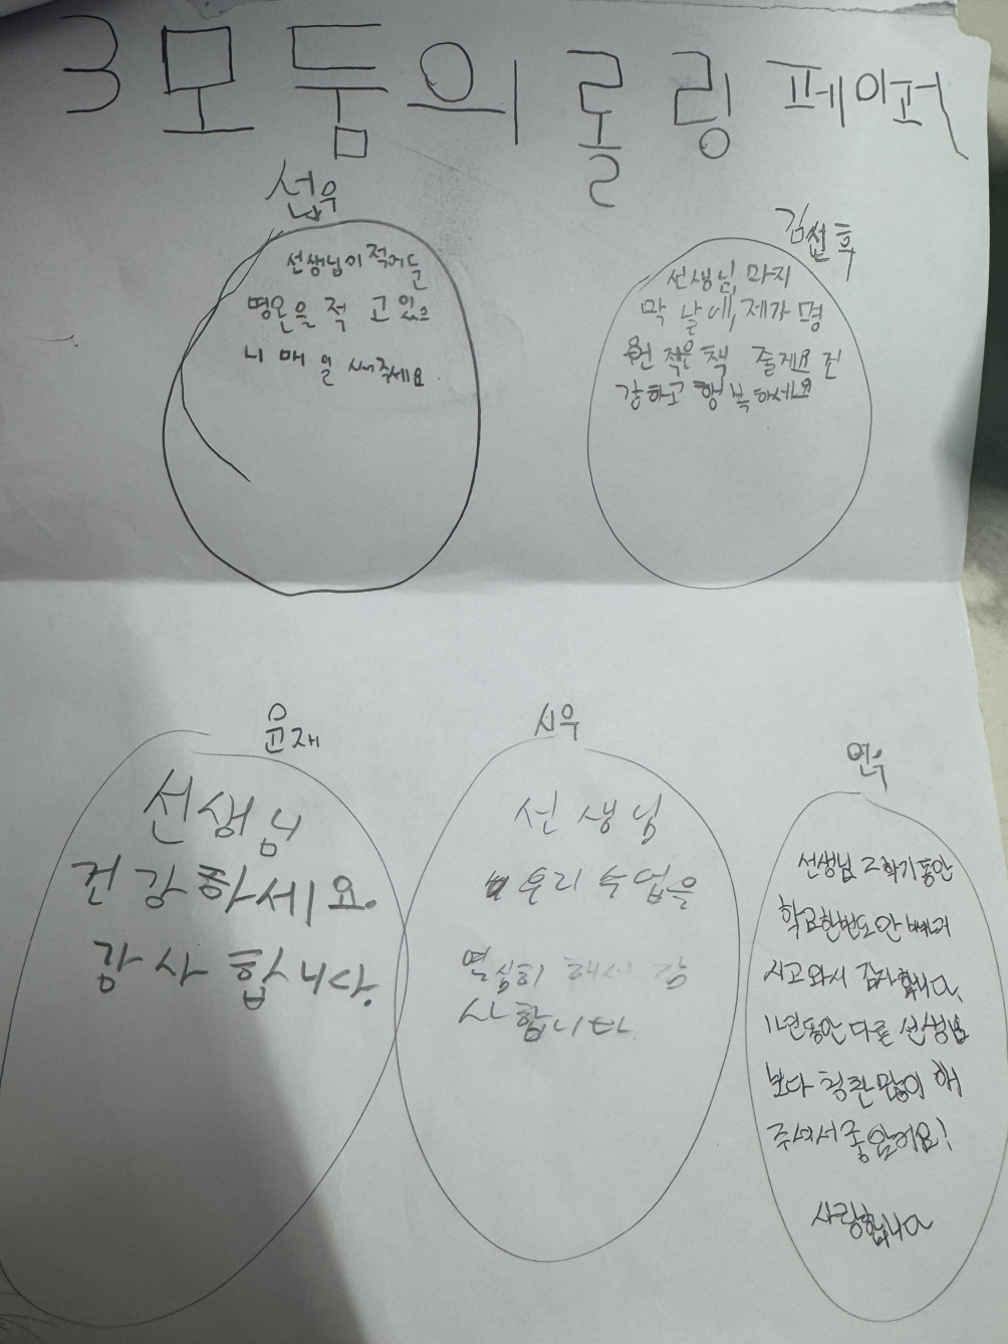 3모둠의 롤링 페이퍼
선우
선생님이 적어둔
명언을 적고 있으
니 매일 써주세요.
김선후
선생님, 마지
막 날에, 제가 명
언 적은 책 줄게요 건
강하고 행복하세요
윤재
선생님
건강하세요.
감사합니다.
시우
선생님
우리 수업을
열심히 해서 감
사합니다
연수
선생님 2학기동안
학교한번도안빠지
시고 와서 감사합니다.
11년동안 다른 선생님
보다 칭찬많이 해
주셔서좋았어요!
사랑합니다